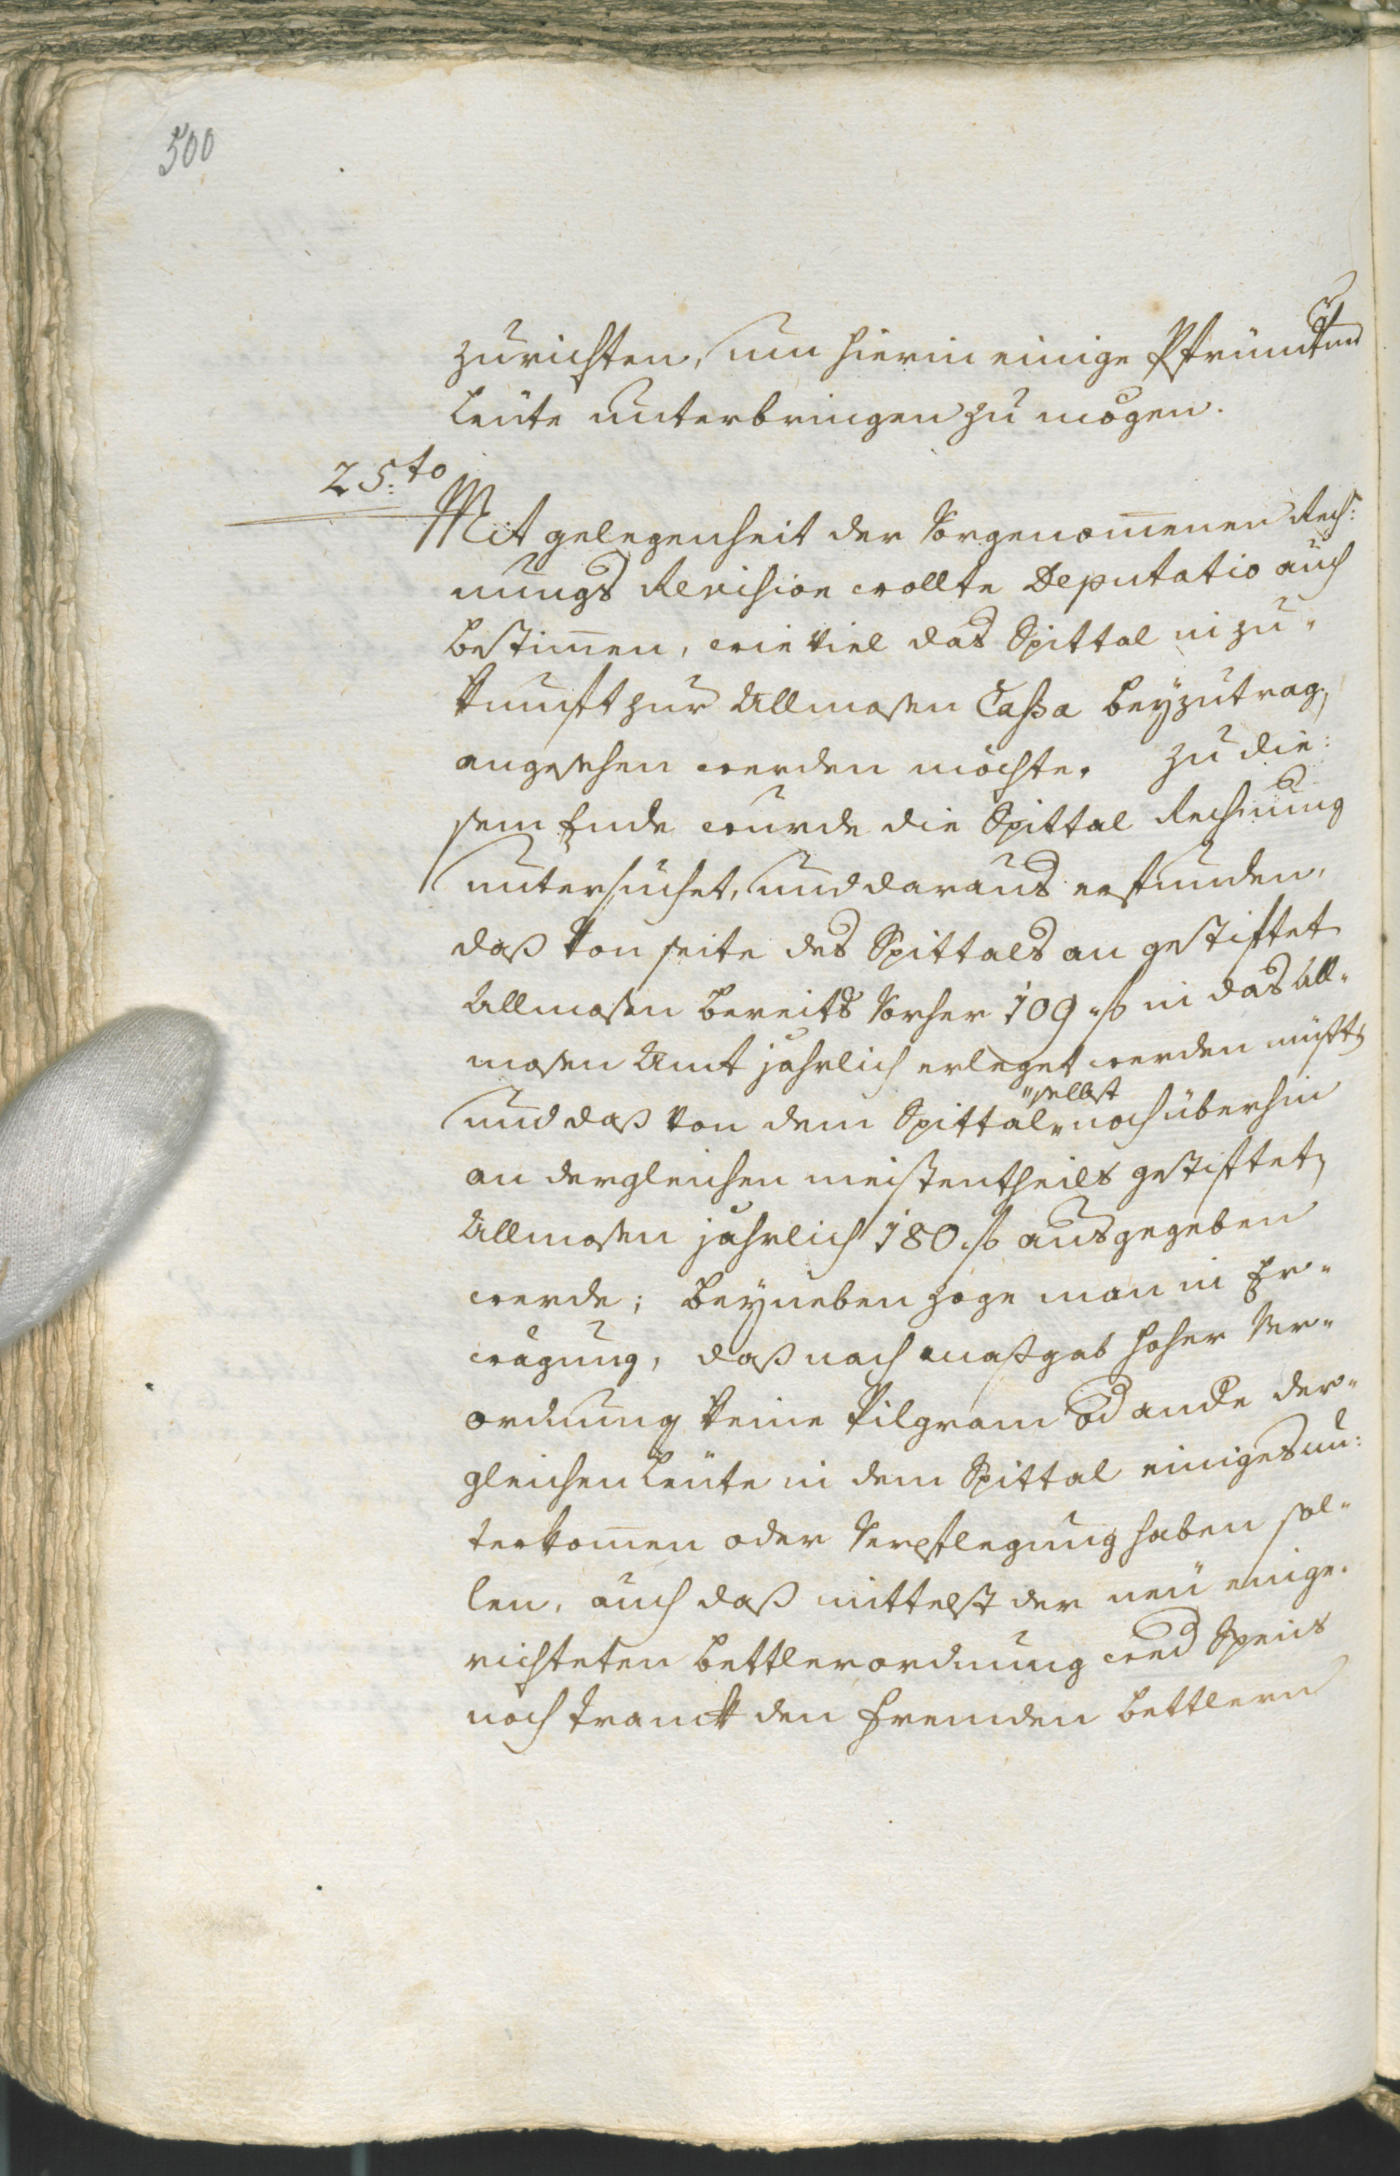 500
zurichten, um hierin einige Pfründten
Leüte unterbringen zu mögen.
25.to
Mit gelegenheit der Vorgenom̅enen Rech:
nungs Revision wollte Deputatio auch
bestim̅en, wie viel das Spittal in zu-
kunft zur Allmosen Cassa beyzutrag.
angesehen werden möchte. Zu die:
sem Ende wurde die Spittal Rechnung
untersuchet, und daraus erfunden,
daß von seite des Spittals an gestiftet
Allmosen bereits vorher 109 f in das All-
mosen Amt jährlich erleget werden müste,
"selbst
und daß von dem Spittal " noch überhin
an dergleichen meistentheils gestifteten
Allmosen jährlich 180 f ausgegeben
werde; beyneben zoge man in Er-
wägung, daß nach maßgab hoher Ver-
ordnung keine Pilgram od ande der-
gleichen Leüte in dem Spittal einiges un:
terkom̅en oder Verpflegung haben sol-
len, auch daß mittelst der neü einge-
richteten bettlerordnung wed Speis
noch tranck den fremden bettlern